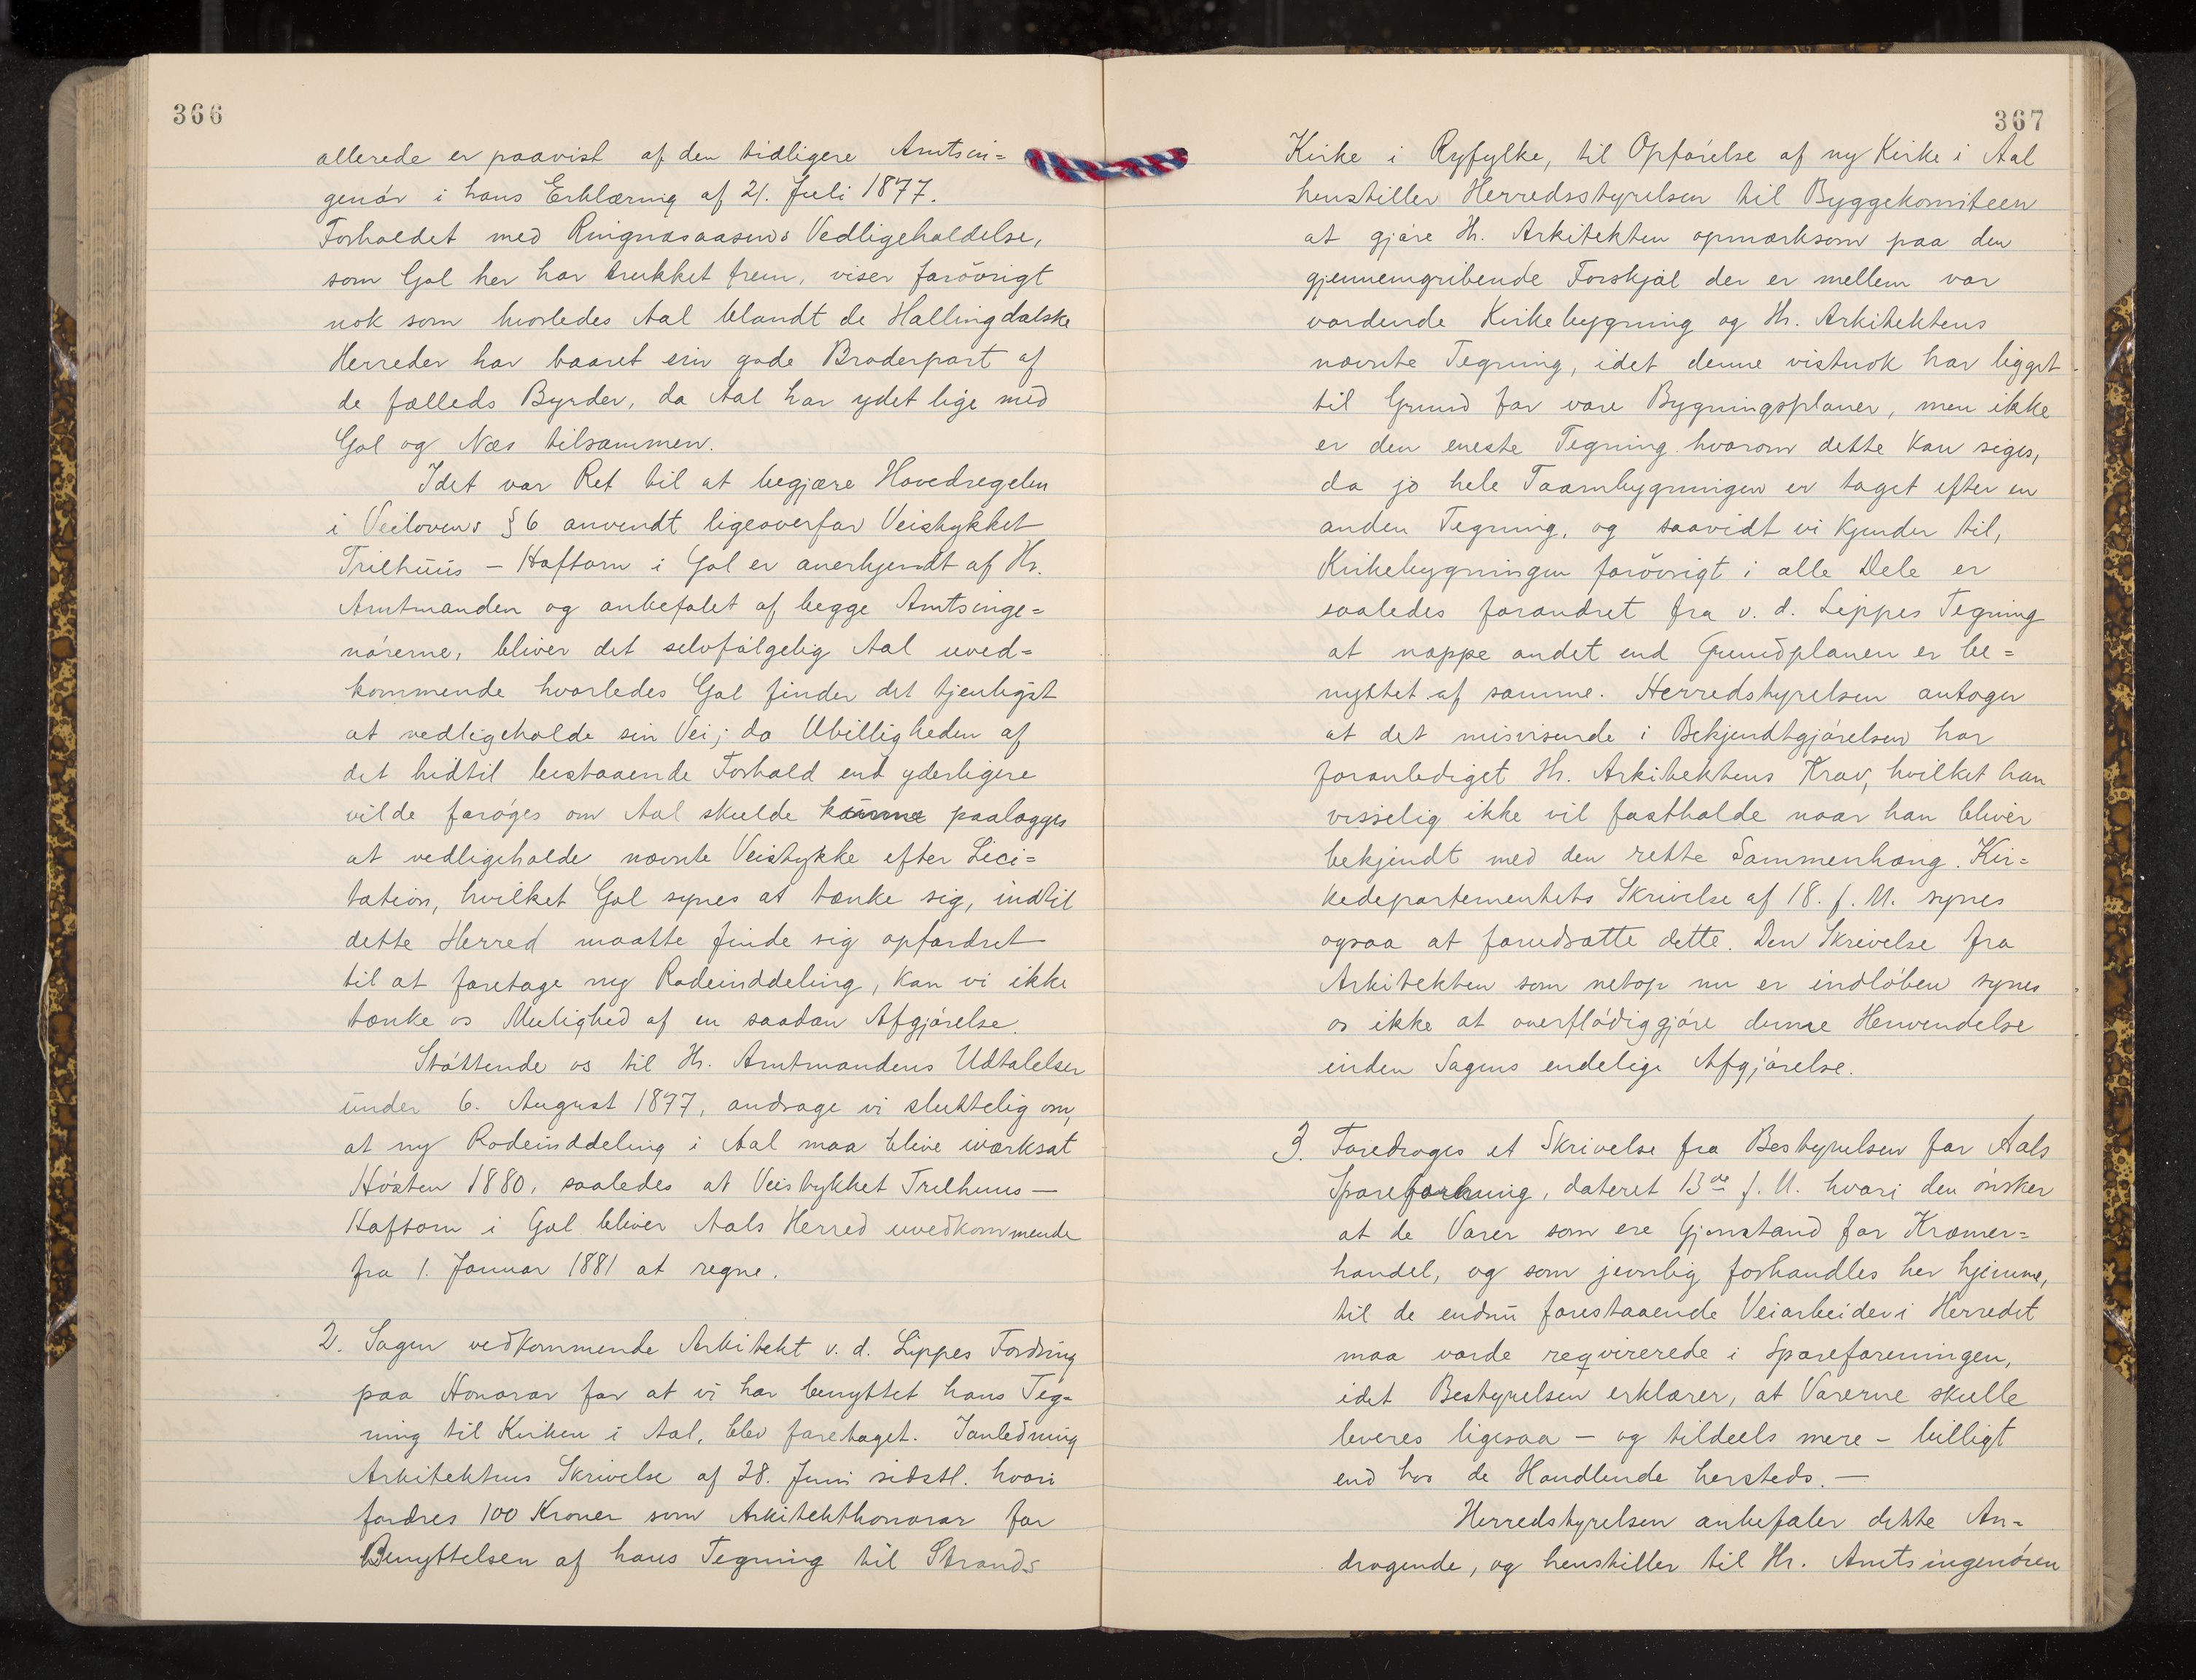 366
allerede er paavist af den tidligere Amtsin=
genör i hans Erklæring af 21. Juli 1877.
Forholdet med Ringnæsaasens Vedligeholdelse,
som Gol her har trukket frem, viser forövrigt
nok som hvorledes Aal blandt de Hallingdalske
Herreder har baaret sin gode Broderpart af
de fælleds Byrder, da Aal har ydet lige med
Gol og Næs tilsammen.
Idet vor Ret til at begjære Hovedregelen
i Veilovens § 6 anvendt ligeoverfor Veistykket
Trilhuus — Haftorn i Gol er anerkjendt af Hr.
Amtmanden og anbefalet af begge Amtsinge=
nörerne, bliver det selvfölgelig Aal uved=
kommende hvorledes Gol finder det tjenligst
at vedligeholde sin Vei; da Ubilligheden af
det hidtil bestaaende Forhold end yderligere
vilde foröges om Aal skulde kunne paalægges
at vedligeholde nævnte Veistykke efter Lici=
tation, hvilket Gol synes at tænke sig, indtil
dette Herred maatte finde sig opfordret
til at foretage ny Rodeinddeling, kan vi ikke
tænke os Mulighed af en saadan Afgjörelse.
Stöttende os til Hr. Amtmandens Udtalelser
under 6. August 1877, andrage vi sluttelig om,
at ny Rodeinddeling i Aal maa blive iværksat
Hösten 1880, saaledes at Veistykket Trilhuus —
Haftorn i Gol bliver Aals Herred uvedkommende
fra 1. Januar 1881 at regne.
2. Sagen vedkommende Arkitekt v. d. Lippes Fordring
paa Honorar for at vi har benyttet hans Teg=
ning til Kirken i Aal, blev foretaget. Ianledning
Arkitektens Skrivelse af 28. Juni sidstl. hvori
fordres 100 Kroner som Arkitekthonorar for
Benyttelsen af hans Tegning til Strands
367
Kirke i Ryfylke, til Opförelse af ny Kirke i Aal
henstiller Herredsstyrelsen til Byggekomiteen
at gjöre Hr. Arkitekten opmærksom paa den
gjennemgribende Forskjæl der er mellem vor
vordende Kirkebygning og Hr. Arkitektens
nævnte Tegning, idet denne vistnok har ligget
til Grund for vore Bygningsplaner, men ikke
er den eneste Tegning hvorom dette kan siges,
da jo hele Taarnbygningen er taget efter en
anden Tegning, og saavidt vi kjender til,
Kirkebygningen forövrigt i alle Dele er
saaledes forandret fra v. d. Lippes Tegning
at nappe andet end Grundplanen er be=
nyttet af samme. Herredstyrelsen antager
at det misvisende i Bekjendtgjörelsen har
foranlediget Hr. Arkitektens Krav, hvilket han
visselig ikke vil fastholde naar han bliver
bekjendt med den rette Sammenhæng. Kir=
kedepartementets Skrivelse af 18. f. M. synes
ogsaa at forudsætte dette. Den Skrivelse fra
Arkitekten som netop nu er indlöben synes
os ikke at overflödiggjöre denne Henvendelse
inden Sagens endelige Afgjörelse.
3. Foredroges et Skrivelse fra Bestyrelsen for Aals
Spareforening, dateret 13de f. M. hvori den önsker
at de Varer som ere Gjenstand for Kræmer=
handel, og som jevnlig forhandles her hjemme,
til de endnu forestaaende Veiarbeider i Herredet
maa vorde reqvirerede i Spareforeningen,
idet Bestyrelsen erklærer, at Varerne skulle
leveres ligesaa — og tildeels mere — billigt
end hos de Handlende hersteds. —
Herredstyrelsen anbefaler dette An=
dragende, og henstiller til Hr. Amtsingenören